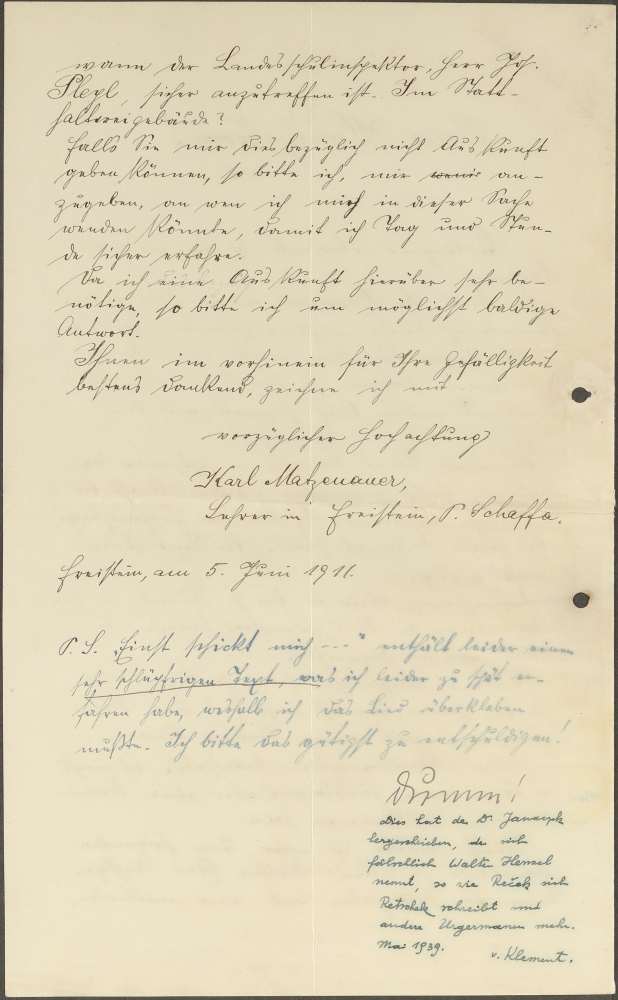 wann der Landesschulinspektor, Herr Joh.
Slegl, sicher anzutreffen ist. Im Statt-
haltereigebäude?
Falls Sie mir diesbezüglich nicht Auskunft
geben können, so bitte ich, mir an-
zugeben, an wen ich mich in dieser Sache
wenden könnte, damit ich Tag und Stun-
de sicher erfahre.
Da ich eine Auskunft hierüber sehr be-
nötige, so bitte ich um möglichst baldige
Antwort.
Ihnen im vorhinein für Ihre Gefälligkeit
bestens dankend, zeichne ich mit
vorzüglicher Hochachtung
Karl Matzenauer,
Lehrer in Freistein, P. Schaffa.
Freistein, am 5. Juni 1911.
P. S. „Einst schickt mich ---" enthält leider einen
sehr schlüpfrigen Text, was ich leider zu spät er-
fahren habe, weshalb ich das Lied überkleben
mußte. Ich bitte das gütigst zu entschuldigen!
Dumm!
Dies hat der Dr. Janaczek
hergeschrieben, der sich
fälschlich Walter Hensel
nennt, so wie Reček sich
Retschek schreibt und
andere Urgermanen mehr.
Mai 1939.
v. Klement.